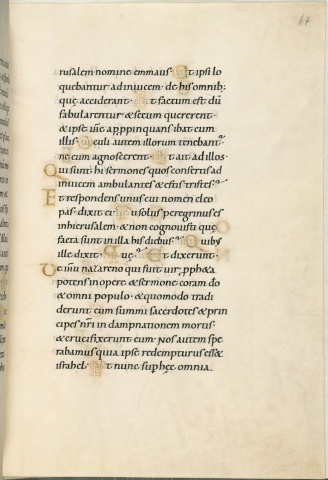 67
rusalem nomine emmaus. Et ipsi lo
quebantur adinuicem de his omnib;
quę acciderant. Et factum est dū
fabularentur & secum quererent.
& ipse ihc̄ appropinquans ibat cum
illis. Oculi autem illorum tenebant̄
ne eum agnoscerent. Et ait ad illos.
Qui sunt hi sermones quos confertis ad
inuicem ambulantes & estis tristes?
Et respondens unus cui nomen cleo
pas. dixit ei. Tu solus peregrinus es
in hierusalem. & non cognouisti quę
facta sunt in illa his diebus? Quibus
ille dixit. Quę? Et dixerunt.
De ihū nazareno qui fuit uir pph&a
potens in opere & sermone coram do
& omni populo. & quomodo tradi
derunt eum summi sacerdotes & prin
cipes nr̄i in dampnationem mortis.
& crucifixerunt eum. Nos autem spe
rabamus quia ipse redempturus ess&
israhel. Et nunc sup hęc omnia.